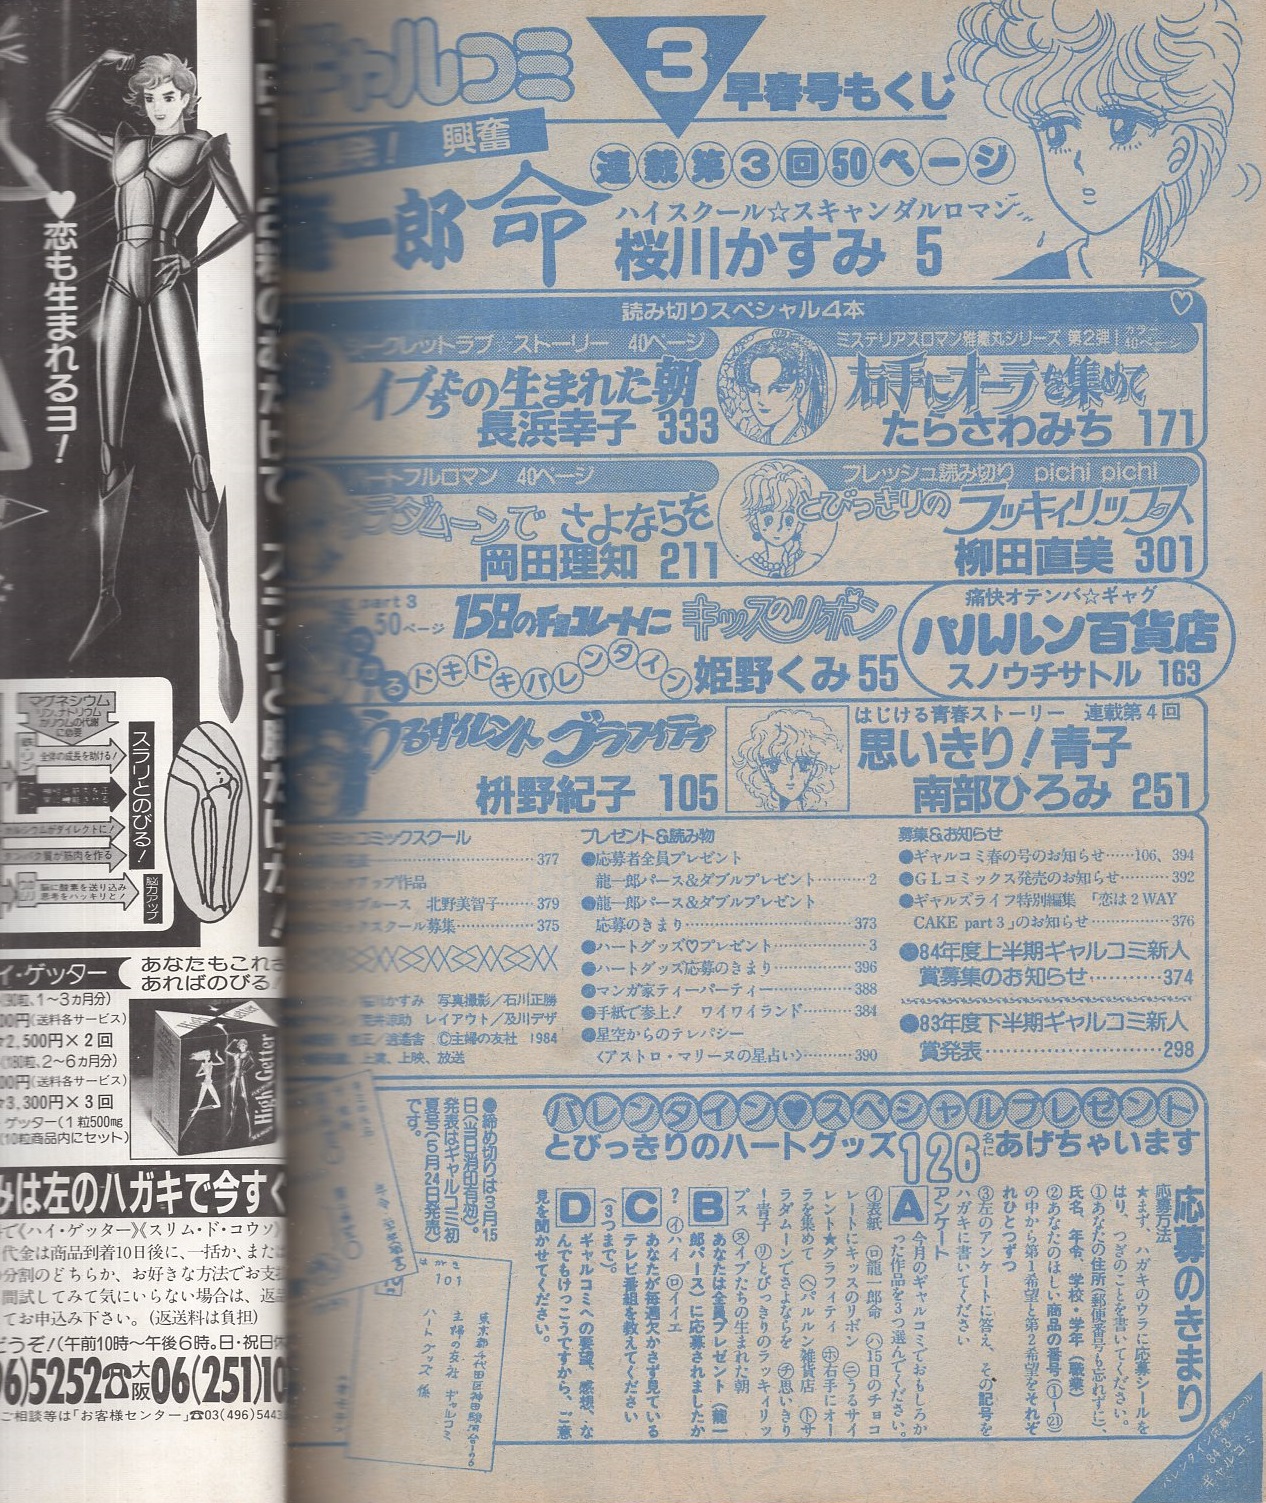 ギャルコミ
3
早春号もくじ
興奮
龍一郎命
連載第3回50ページ
ハイスクール☆スキャンダルロマン
桜川かすみ 5
読み切りスペシャル4本
シークレットラブ☆ストーリー 40ページ
イブたちの生まれた朝
長浜幸子 333
ミステリアスロマン惟籠丸シリーズ 第2弾!カラー40ページ
右手にオーラを集めて
たらさわみち 171
ートフルロマン 40ページ
ラダムーンでさよならを
岡田理知 211
フレッシュ読み切り pichi pichi
とびっきりのラッキィリップス
柳田直美 301
part 3
50ページ
15日のチョコレートにキッスのリボン
ドキドキバレンタイン
姫野くみ 55
痛快オテンバ☆ギャグ
パルルン百貨店
スノウチサトル 163
うるサイレントグラフィティ
枡野紀子 105
はじける青春ストーリー 連載第4回
思いきり!青子
南部ひろみ 251
コミックスクール
377
アップ作品
ブルース 北野美智子……379
ックスクール募集……375
かすみ 写真撮影/石川正勝
レイアウト/及川デザ
©主婦の友社 1984
上演、上映、放送
プレゼント&読み物
●応募者全員プレゼント
龍一郎パース&ダブルプレゼント……2
●龍一郎パース&ダブルプレゼント
応募のきまり……373
●ハートグッズ♡プレゼント……3
●ハートグッズ応募のきまり……396
●マンガ家ティーパーティー……388
●手紙で参上! ワイワイランド……384
●星空からのテレパシー
〈アストロ・マリーヌの星占い〉……390
募集&お知らせ
●ギャルコミ春の号のお知らせ……106、394
●GLコミックス発売のお知らせ……392
●ギャルズライフ特別編集 「恋は2 WAY
CAKE part 3」のお知らせ……376
●84年度上半期ギャルコミ新人
賞募集のお知らせ……374
●83年度下半期ギャルコミ新人
賞発表……298
バレンタイン♥スペシャルプレゼント
とびっきりのハートグッズ126名にあげちゃいます
応募のきまり
応募方法
★まず、ハガキのウラに応募シールを
はり、つぎのことを書いてください。
①あなたの住所(郵便番号も忘れずに)、
氏名、年令、学校・学年(職業)
②あなたのほしい商品の番号(①〜㉑)
の中から第1希望と第2希望をそれぞ
れひとつずつ
③左のアンケートに答え、その記号を
ハガキに書いてください
アンケート
A 今月のギャルコミでおもしろか
った作品を3つ選んでください。
㋑表紙 ㋺龍一郎命 ㋩15日のチョコ
レートにキッスのリボン ㋥うるサイ
レント★グラフィティ ㋭右手にオー
ラを集めて ㋬パルルン雑貨店 ㋣サ
ラダムーンでさよならを ㋠思いきり
!青子 ㋷とびっきりのラッキィリッ
プス ㋦イブたちの生まれた朝
B あなたは全員プレゼント(龍一
郎パース)に応募されましたか
? ㋑ハイ ㋺イイエ
C あなたが毎週欠かさず見ている
テレビ番組を教えてください
(3つまで)。
D ギャルコミへの要望、感想、な
んでもけっこうですから、ご意
見を聞かせてください。
●締め切りは3月15
日(当日消印有効)。
発表はギャルコミ初
夏号(5月24日発売)
です。
101
東京都千代田区神田駿河台1の6
主婦の友社 ギャルコミ
ハートグッズ係
バレンタイン応募シール
84.3
ギャルコミ
♥恋も生まれるヨ!
マグネシウム
カリウムの代謝
に必要
全体の成長を助ける!
カルシウムがダイレクトに!
タンパク質が筋肉を作る
脳に酸素を送り込み
思考をハッキリと!
スラリとのびる!
脳力アップ
イ・ゲッター
あなたもこれさ
あればのびる!
(90粒、1〜3ヵ月分)
00円(送料各サービス)
2,500円×2回
(180粒、2〜6ヵ月分)
00円(送料各サービス)
3,300円×3回
ゲッター(1粒500mg
(10粒商品内にセット)
High Getter
みは左のハガキで今すぐ
て《ハイ・ゲッター》《スリム・ド・コウソ》
代金は商品到着10日後に、一括か、または
分割のどちらか、お好きな方法でお支
間試してみて気にいらない場合は、返
てお申込み下さい。(返送料は負担)
どうぞ!(午前10時〜午後6時。日・祝日休
96)5252☎大阪06(251)10
ご相談等は「お客様センター」☎03(496)543